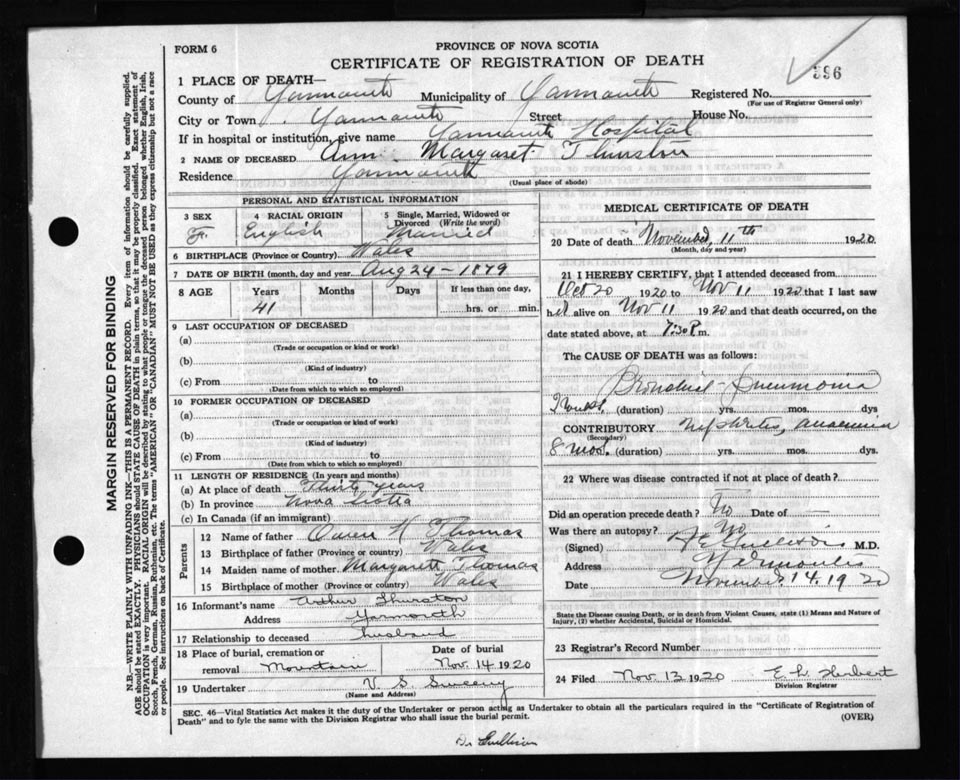 FORM 6
PROVINCE OF NOVA SCOTIA
CERTIFICATE OF REGISTRATION OF DEATH
396
1 PLACE OF DEATH—
County of Yarmouth Municipality of Yarmouth Registered No.
(For use of Registrar General only)
City or Town Yarmouth Street House No.
If in hospital or institution, give name Yarmouth Hospital
2 NAME OF DECEASED Ann Margaret Thurston
Residence Yarmouth
(Usual place of abode)
PERSONAL AND STATISTICAL INFORMATION
3 SEX F. 4 RACIAL ORIGIN English 5 Single, Married, Widowed or Divorced (Write the word) Married
6 BIRTHPLACE (Province or Country) Wales
7 DATE OF BIRTH (month, day and year) Aug 24 - 1879
8 AGE Years Months Days If less than one day,
41 hrs. or min.
9 LAST OCCUPATION OF DECEASED
(a)
(Trade or occupation or kind or work)
(b)
(Kind of industry)
(c) From to
(Date from which to which so employed)
10 FORMER OCCUPATION OF DECEASED
(a)
(Trade or occupation or kind of work)
(b)
(Kind of industry)
(c) From to
(Date from which to which so employed)
11 LENGTH OF RESIDENCE (In years and months)
(a) At place of death Thirty years
(b) In province Nova Scotia
(c) In Canada (if an immigrant)
Parents
12 Name of father Owen H Thomas
13 Birthplace of father (Province or country) Wales
14 Maiden name of mother Margarett Thomas
15 Birthplace of mother (Province or country) Wales
16 Informant's name Arthur Thurston
Address Yarmouth
17 Relationship to deceased husband
18 Place of burial, cremation or removal Mountain Date of burial Nov. 14 1920
19 Undertaker V S Sweeny
(Name and Address)
MEDICAL CERTIFICATE OF DEATH
20 Date of death November, 11th 1920
(Month, day and year)
21 I HEREBY CERTIFY, that I attended deceased from
Oct 20 1920 to Nov 11 1920 that I last saw
her alive on Nov 11 1920 and that death occurred, on the
date stated above, at 7.30 P. m.
The CAUSE OF DEATH was as follows:
Bronchial-Pneumonia
(duration) yrs. mos. dys
CONTRIBUTORY Nephritis, anaemia
(Secondary)
8 mos. (duration) yrs. mos. dys.
22 Where was disease contracted if not at place of death?
Did an operation precede death? No Date of —
Was there an autopsy? No
(Signed) M.D.
Address Yarmouth
Date November 14 1920
State the Disease causing Death, or in death from Violent Causes, state (1) Means and Nature of
Injury, (2) whether Accidental, Suicidal or Homicidal.
23 Registrar's Record Number
24 Filed Nov. 13 1920 E. L. Herbert
Division Registrar
SEC. 46—Vital Statistics Act makes it the duty of the Undertaker or person acting as Undertaker to obtain all the particulars required in the "Certificate of Registration of
Death" and to fyle the same with the Division Registrar who shall issue the burial permit. (OVER)
MARGIN RESERVED FOR BINDING
N.B.—WRITE PLAINLY WITH UNFADING INK—THIS IS A PERMANENT RECORD. Every item of information should be carefully supplied.
AGE should be stated EXACTLY. PHYSICIANS should STATE CAUSE OF DEATH in plain terms, so that it may be properly classified. Exact statement of
OCCUPATION is very important. RACIAL ORIGIN will be described by stating to what people or tongue the deceased person belonged whether English, Irish,
Scotch, French, German, Russian, Ruthenian, etc. The terms "AMERICAN" or "CANADIAN" MUST NOT BE USED as they express citizenship but not a race
or people. See instructions on back of Certificate.